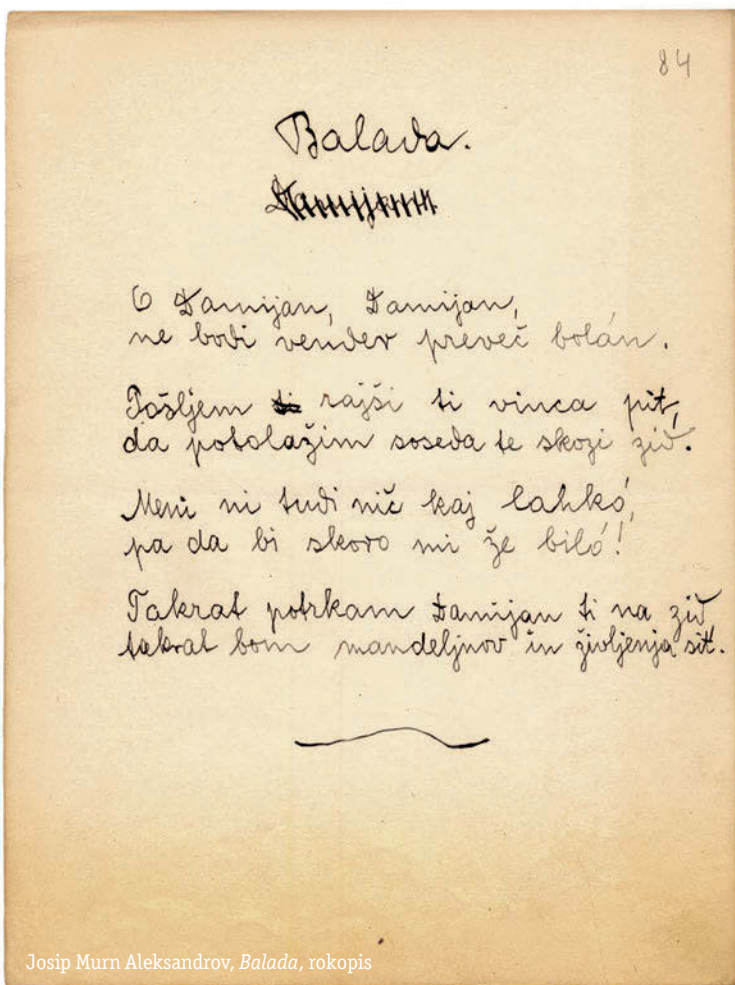 84
Balada.
O Damijan, Damijan,
ne bodi vendèr preveč bolán.
Pošljem rajši ti vinca pit,
da potolažim soseda te skozi zid.
Meni ni tudi nič kaj lahkó,
pa da bi skoro mi že biló!
Takrat potrkam Damijan ti na zid,
takrat bom mandeljnov in življenja sit.
Josip Murn Aleksandrov, Balada, rokopis